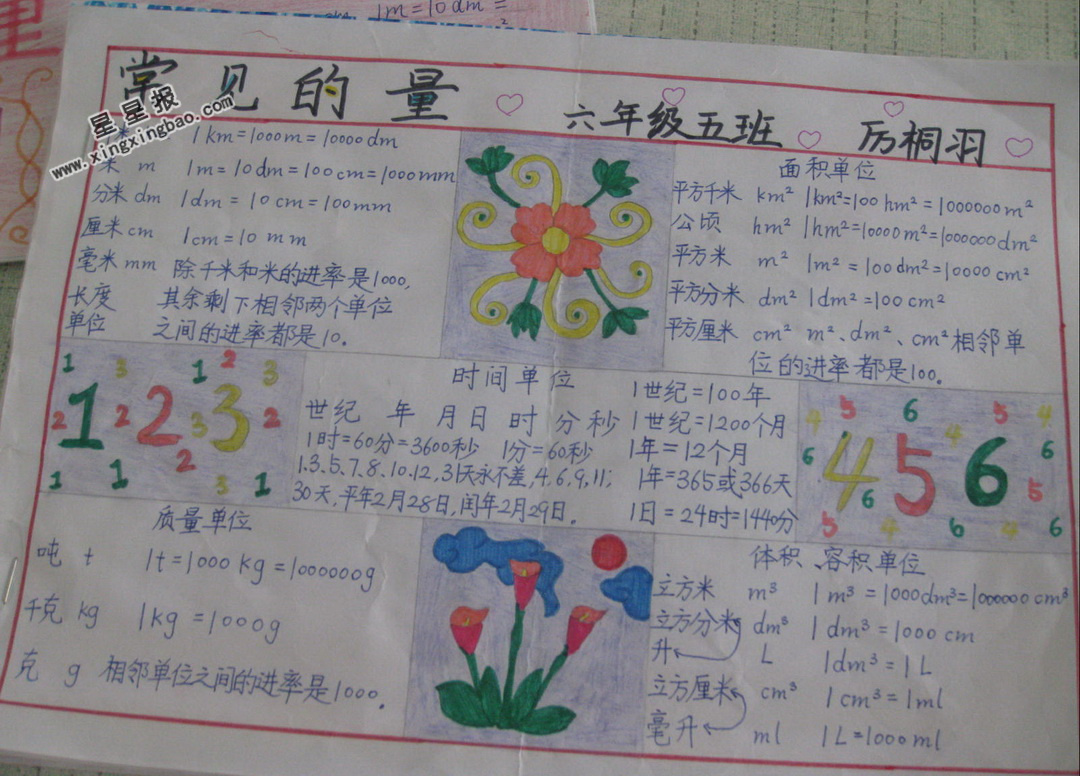 1m = 10 dm =
常见的量
六年级五班 厉桐羽
星星报
www.xingxingbao.com
1km = 1000m = 10000 dm
米 m 1m = 10 dm = 100 cm = 1000 mm
分米 dm 1dm = 10 cm = 100mm
厘米 cm 1cm = 10 mm
毫米 mm 除千米和米的进率是1000,
长度 其余剩下相邻两个单位
单位 之间的进率都是10.
面积单位
平方千米 km² 1km²=100 hm² = 1000000 m²
公顷 hm² 1hm²=10000m²=1000000 dm²
平方米 m² 1m² = 100 dm² = 10000 cm²
平方分米 dm² 1dm² = 100 cm²
平方厘米 cm² m²、dm²、cm² 相邻单
位的进率都是100.
1 2 3
时间单位
世纪 年 月 日 时 分 秒
1时=60分=3600秒 1分=60秒
1.3.5.7.8.10.12,31天永不差,4.6.9.11;
30天,平年2月28日,闰年2月29日.
1世纪=100年
1世纪=1200个月
1年=12个月
1年=365或366天
1日=24时=1440分
4 5 6
质量单位
吨 t 1t = 1000 kg = 1000000g
千克 kg 1kg = 1000g
克 g 相邻单位之间的进率是1000.
体积、容积单位
立方米 m³ 1m³ = 1000dm³=1000000 cm³
立方分米 dm³ 1dm³ = 1000 cm
升 L 1dm³ = 1L
立方厘米 cm³ 1cm³ = 1ml
毫升 ml 1L = 1000 ml